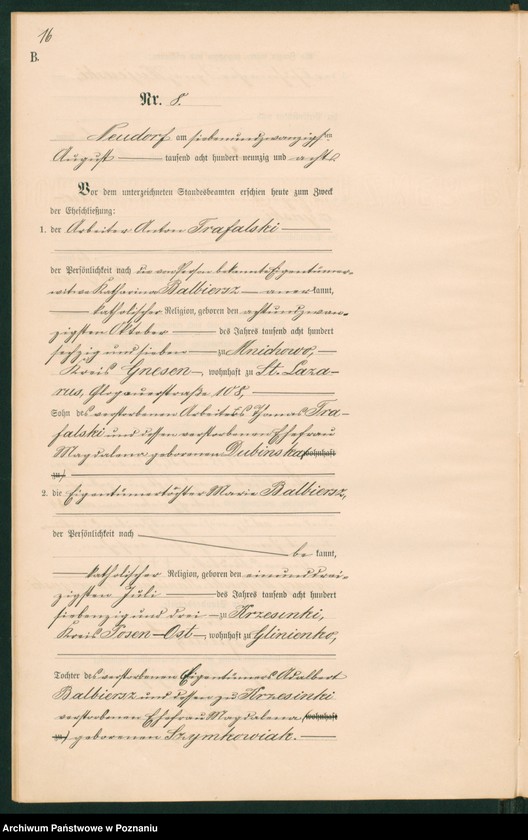 16
B.
Nr. 8.
Neudorf am siebenundzwanzigsten
August tausend acht hundert neunzig und acht
Vor dem unterzeichneten Standesbeamten erschien heute zum Zweck
der Eheschließung:
1. der Arbeiter Anton Trafalski
der Persönlichkeit nach die von Person bekannte Eigentümer-
witwe Katharina Balbiersz anerkannt,
katholischer Religion, geboren den achtundzwan-
zigsten Oktober des Jahres tausend acht hundert
sechzig und sieben zu Mnichowo,
Kreis Gnesen, wohnhaft zu St. Laza-
rus, Glogauerstraße 108,
Sohn des verstorbenen Arbeiters Thomas Tra-
falski und dessen verstorbenen Ehefrau
Magdalena geborenen Dubinska wohnhaft
zu
2. die Eigentümertochter Marie Balbiersz,
der Persönlichkeit nach
be kannt,
katholischer Religion, geboren den einunddrei-
zigsten Juli des Jahres tausend acht hundert
siebenzig und drei zu Krzesinki,
Kreis Posen-Ost, wohnhaft zu Glinienko,
Tochter des verstorbenen Eigentümers Adalbert
Balbiersz und dessen zu Krzesinki
verstorbenen Ehefrau Magdalena (wohnhaft
zu) geborenen Szymkowiak.
Archiwum Państwowe w Poznaniu